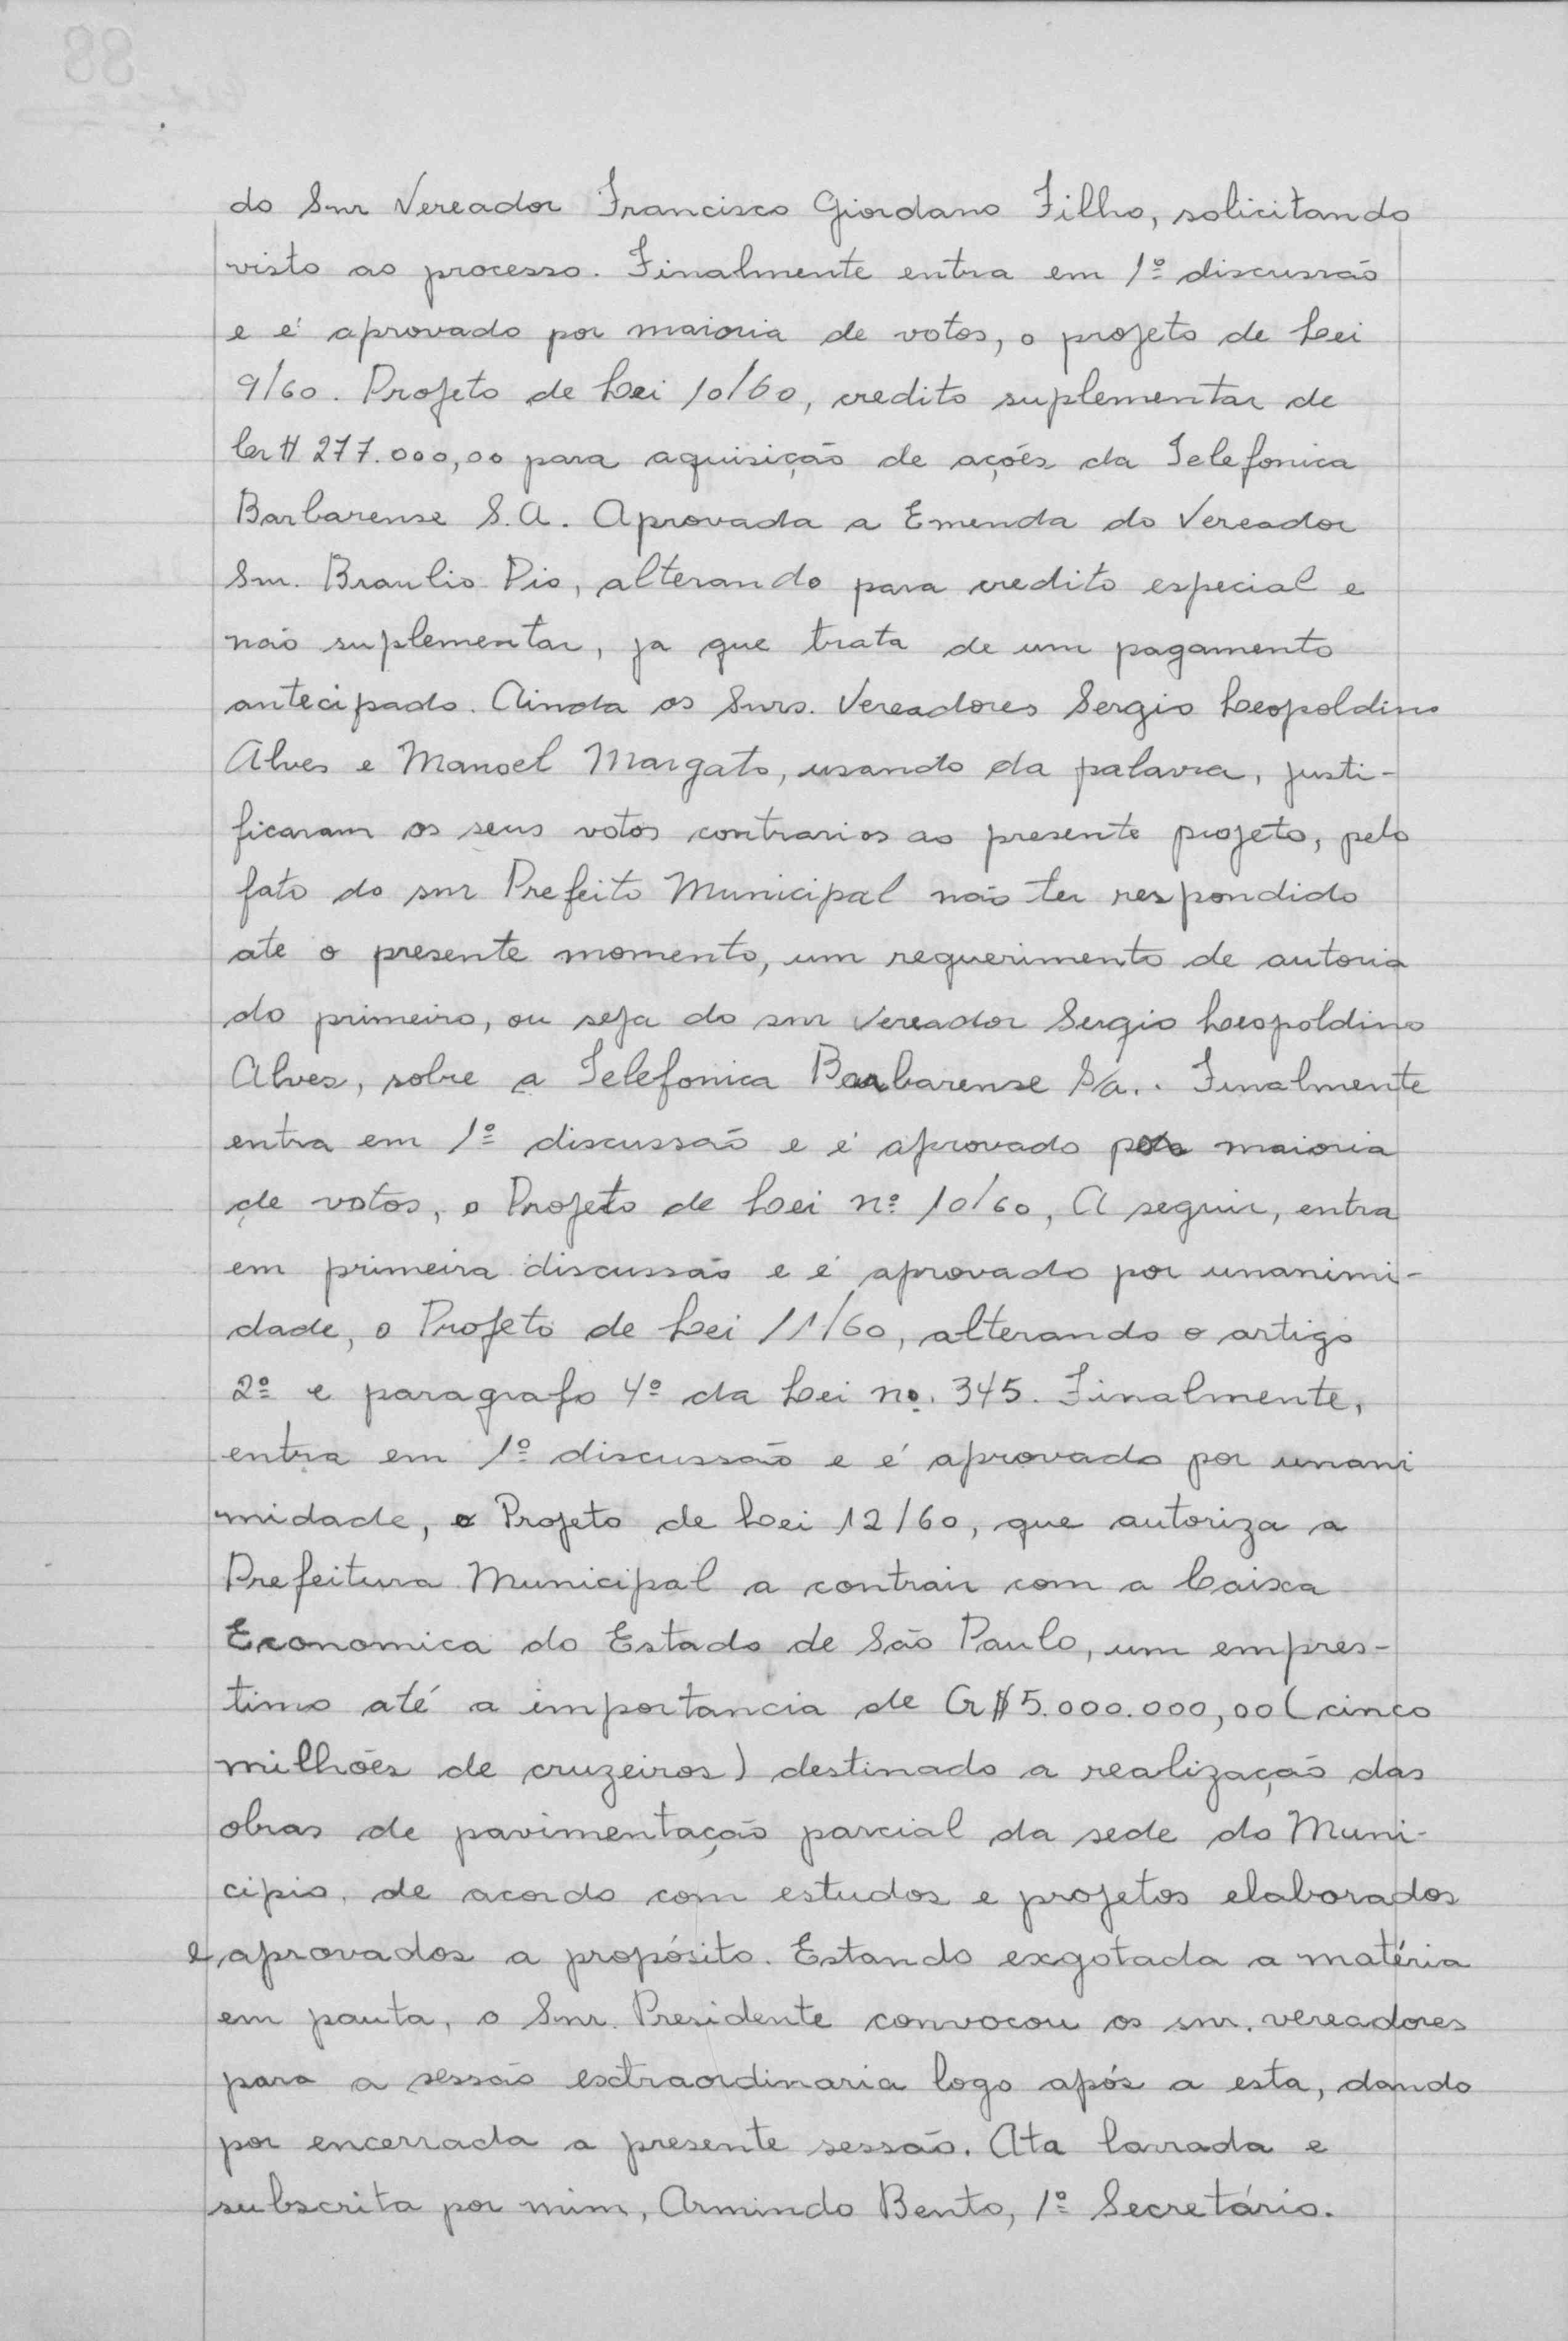 do Snr Vereador Francisco Giordano Filho, solicitando
visto ao processo. Finalmente entra em 1º discussão
e é aprovado por maioria de votos, o projeto de Lei
9/60. Projeto de Lei 10/60, credito suplementar de
Cr$ 277.000,00 para aquisição de ações da Telefonica
Barbarense S.A. Aprovada a Emenda do Vereador
Snr. Braulio Pio, alterando para credito especial e
não suplementar, ja que trata de um pagamento
antecipado. Ainda os Snrs. Vereadores Sergio Leopoldino
Alves e Manoel Margato, usando da palavra, justi-
ficaram os seus votos contrarios ao presente projeto, pelo
fato do snr Prefeito Municipal não ter respondido
ate o presente momento, um requerimento de autoria
do primeiro, ou seja do snr Vereador Sergio Leopoldino
Alves, sobre a Telefonica Barbarense S/a.. Finalmente
entra em 1º discussão e é aprovado por maioria
de votos, o Projeto de Lei nº 10/60, A seguir, entra
em primeira discussão e é aprovado por unanimi-
dade, o Projeto de Lei 11/60, alterando o artigo
2º e paragrafo 4º da Lei nº. 345. Finalmente,
entra em 1º discussão e é aprovado por unani
midade, o Projeto de Lei 12/60, que autoriza a
Prefeitura Municipal a contrair com a Caixa
Economica do Estado de São Paulo, um empres-
timo até a importancia de Cr$ 5.000.000,00 (cinco
milhões de cruzeiros) destinado a realização das
obras de pavimentação parcial da sede do Muni-
cipio, de acordo com estudos e projetos elaborados
e aprovados a propósito. Estando exgotada a matéria
em pauta, o Snr. Presidente convocou os snr. vereadores
para a sessão extraordinaria logo após a esta, dando
por encerrada a presente sessão. Ata lavrada e
subscrita por mim, Armindo Bento, 1º Secretário.